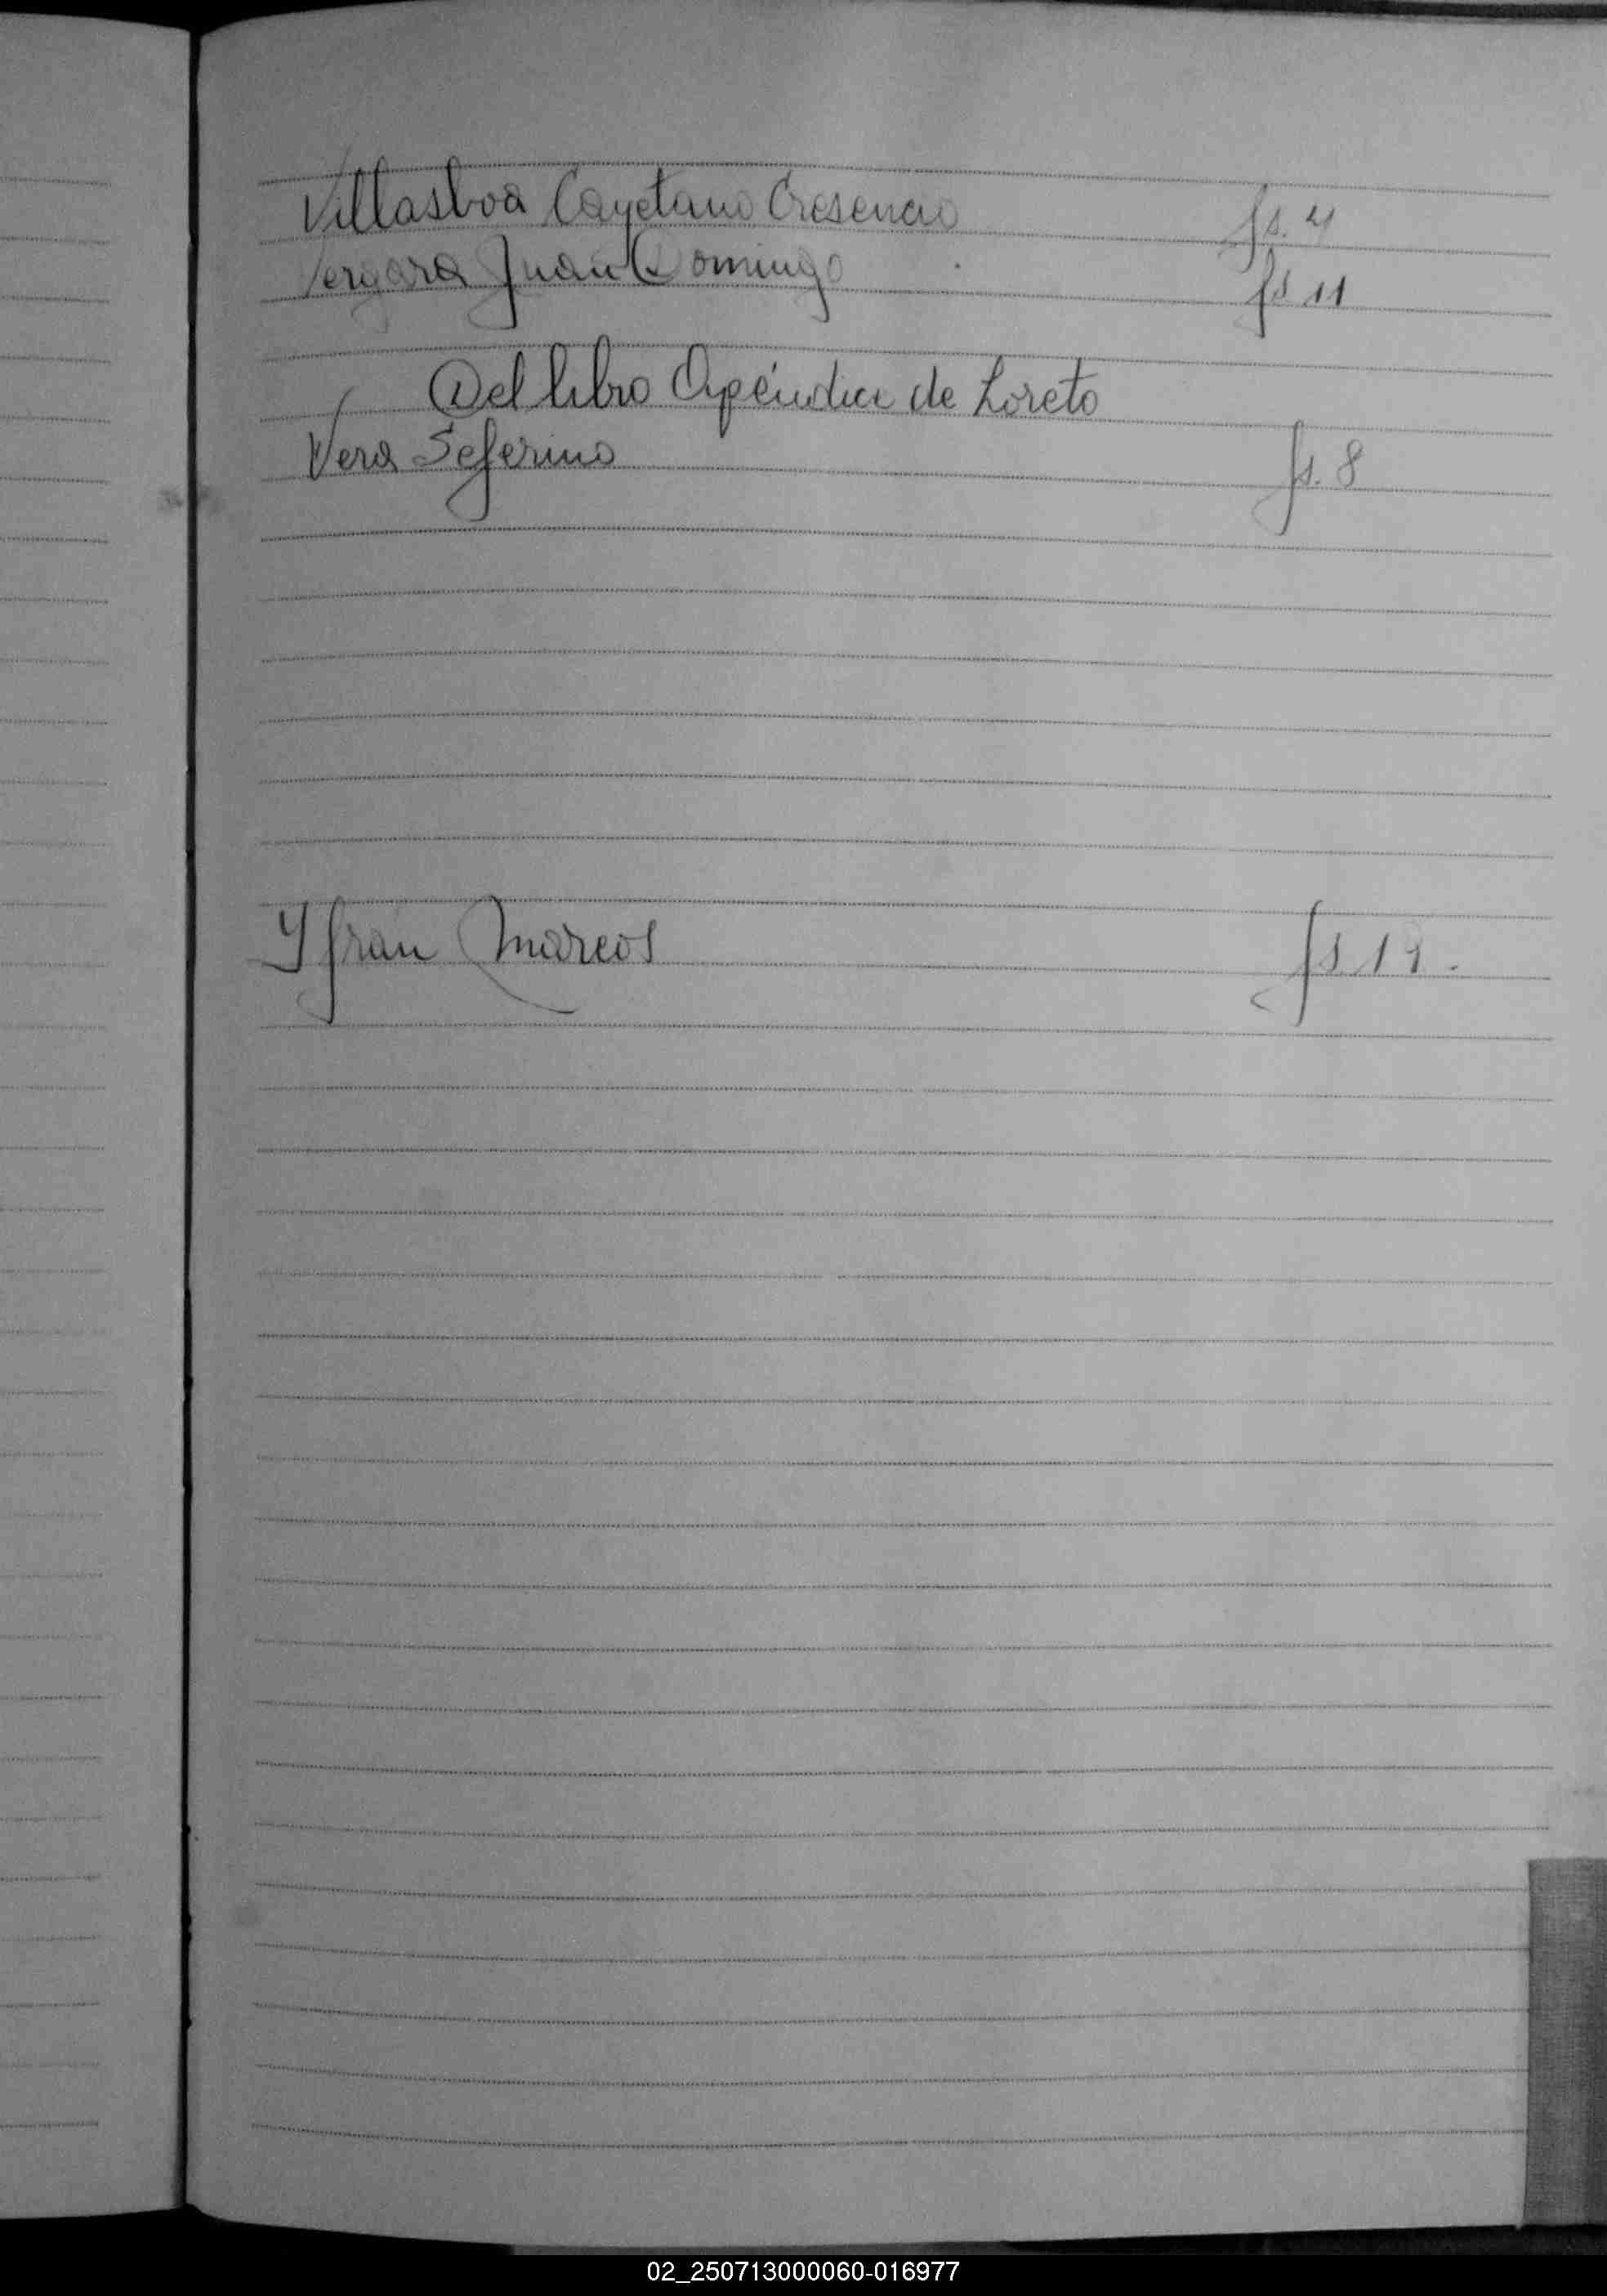 Villasboa Cayetano Cresencio fs. 4
Vergara Juan Domingo fs 11
Del libro Apéndice de Loreto
Vera Seferino fs. 8
Yfran Marcos fs 11.
02_250713000060-016977